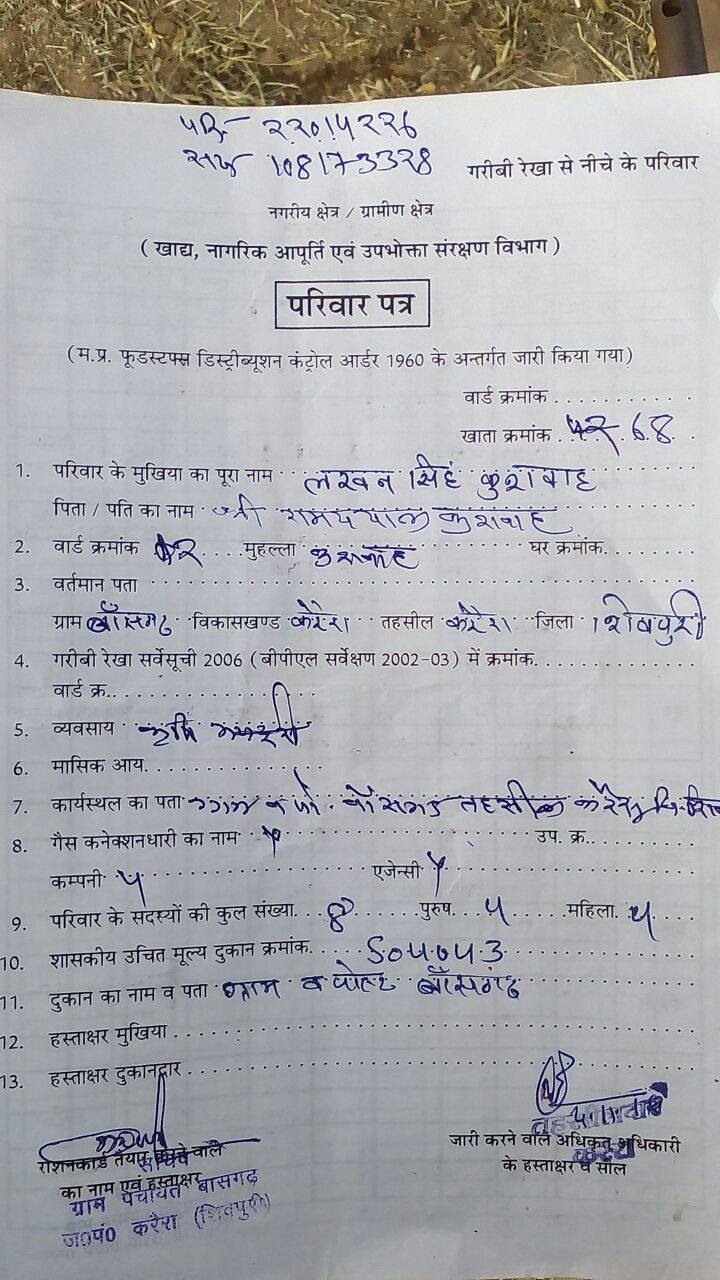 गरीबी रेखा से नीचे के परिवार
नगरीय क्षेत्र / ग्रामीण क्षेत्र
( खाद्य, नागरिक आपूर्ति एवं उपभोक्ता संरक्षण विभाग )
परिवार पत्र
(म.प्र. फूडस्टफ्स डिस्ट्रीब्यूशन कंट्रोल आर्डर 1960 के अन्तर्गत जारी किया गया)
वार्ड क्रमांक
खाता क्रमांक 68
1. परिवार के मुखिया का पूरा नाम लखन सिंह कुशवाह
पिता / पति का नाम श्री रामदयाल कुशवाह
2. वार्ड क्रमांक मुहल्ला कुशवाह घर क्रमांक
3. वर्तमान पता
ग्राम बाँसगढ विकासखण्ड करैरा तहसील करैरा जिला शिवपुरी
4. गरीबी रेखा सर्वेसूची 2006 (बीपीएल सर्वेक्षण 2002-03) में क्रमांक
वार्ड क्र.
5. व्यवसाय कृषि
6. मासिक आय
7. कार्यस्थल का पता ग्राम व पो. बाँसगढ तहसील करैरा
8. गैस कनेक्शनधारी का नाम उप. क्र.
कम्पनी एजेन्सी
9. परिवार के सदस्यों की कुल संख्या 8 पुरुष महिला
10. शासकीय उचित मूल्य दुकान क्रमांक
11. दुकान का नाम व पता ग्राम व पोस्ट बाँसगढ
12. हस्ताक्षर मुखिया
13. हस्ताक्षर दुकानदार
तहसीलदार
जारी करने वाले अधिकृत अधिकारी
के हस्ताक्षर व सील
राशनकार्ड तैयार करने वाले
सचिव
का नाम एवं हस्ताक्षर
ग्राम पंचायत बासगढ़
ज०पं० करैरा (शिवपुरी)